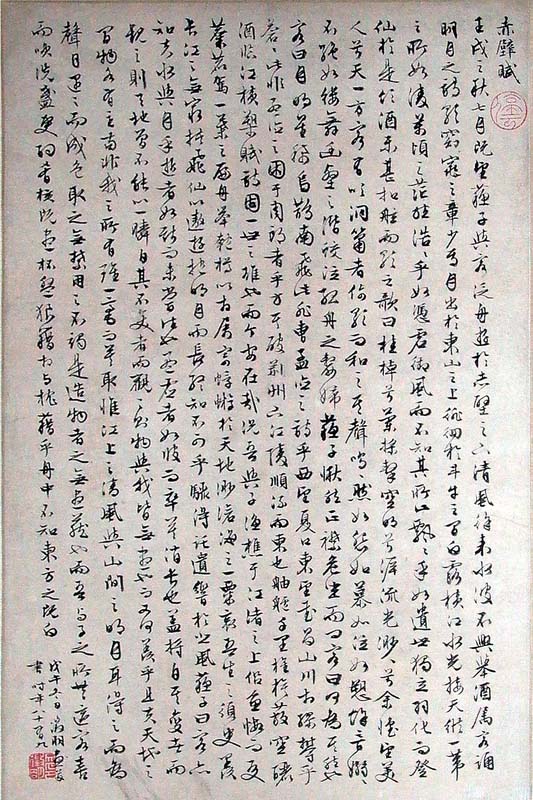 赤壁賦
壬戌之秋七月既望蘇子與客泛舟遊於赤壁之下清風徐來水波不興舉酒屬客誦
明月之詩歌窈窕之章少焉月出於東山之上徘徊於斗牛之間白露橫江水光接天縱一葦
之所如凌萬頃之茫然浩浩乎如憑虛御風而不知其所止飄飄乎如遺世獨立羽化而登
仙於是飲酒樂甚扣舷而歌之歌曰桂棹兮蘭槳擊空明兮泝流光渺渺兮余懷望美
人兮天一方客有吹洞簫者倚歌而和之其聲嗚嗚然如怨如慕如泣如訴餘音嫋嫋
不絕如縷舞幽壑之潛蛟泣孤舟之嫠婦蘇子愀然正襟危坐而問客曰何為其然也
客曰月明星稀烏鵲南飛此非曹孟德之詩乎西望夏口東望武昌山川相繆鬱乎
蒼蒼此非孟德之困於周郎者乎方其破荊州下江陵順流而東也舳艫千里旌旗蔽空釃
酒臨江橫槊賦詩固一世之雄也而今安在哉況吾與子漁樵于江渚之上侶魚蝦而友
麋鹿駕一葉之扁舟舉匏樽以相屬寄蜉蝣於天地渺滄海之一粟哀吾生之須臾羨
長江之無窮挾飛仙以遨遊抱明月而長終知不可乎驟得託遺響於悲風蘇子曰客亦
知夫水與月乎逝者如斯而未嘗往也盈虛者如彼而卒莫消長也蓋將自其變者而
觀之則天地曾不能以一瞬自其不變者而觀之則物與我皆無盡也而又何羨乎且夫天地之
間物各有主苟非我之所有雖一毫而莫取惟江上之清風與山間之明月耳得之而為
聲目遇之而成色取之無禁用之不竭是造物者之無盡藏也而吾與子之所共適客喜
而笑洗盞更酌肴核既盡杯盤狼籍相與枕藉乎舟中不知東方之既白
戊午冬日
書時年